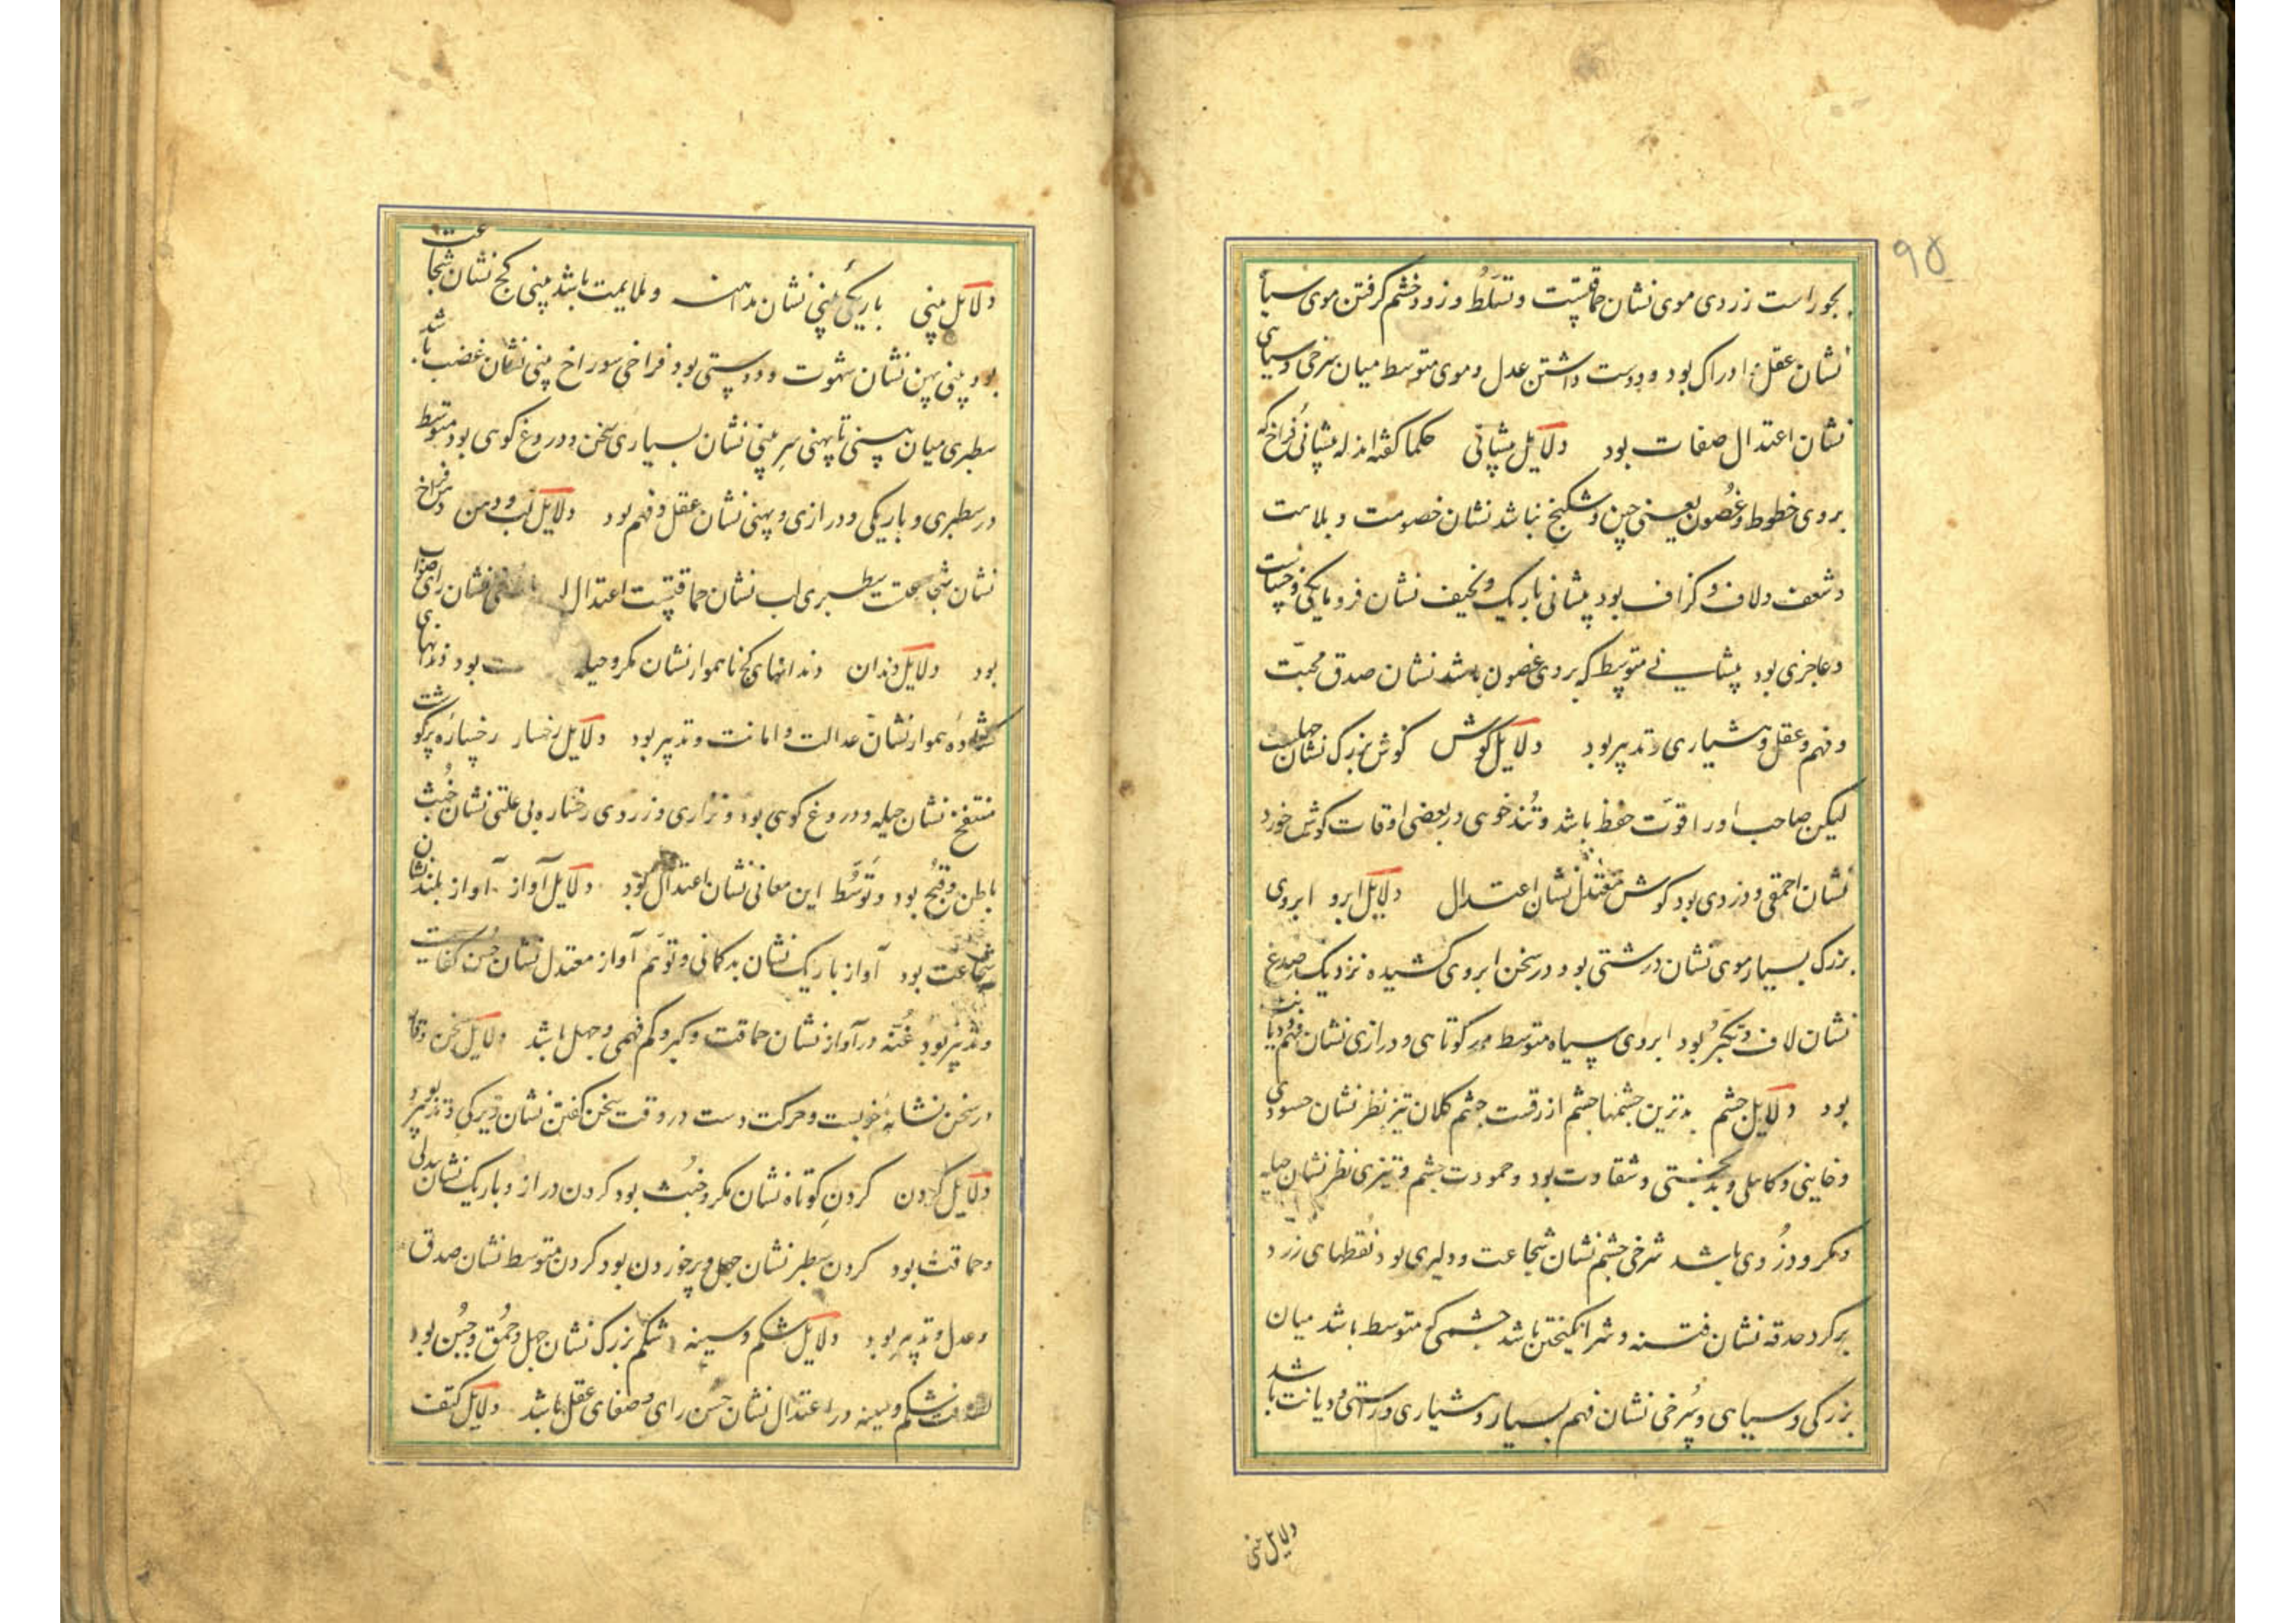 ۹۵
بجور است زردی موی نشان حماقتست و تسلط و زود خشم گرفتن موی سیاه
نشان عقل و ادراک بود و دوست داشتن عدل و موی متوسط میان سرخی و سیاهی
نشان اعتدال صفات بود دلایل پیشانی حکما گفته‌اند که پیشانئ فراخ که
بروی خطوط و غضون یعنی چین و شکنج نباشد نشان خصومت و بلاهت
و شعف و لاف و گزاف بود پیشانی باریک و نحیف نشان فرومایگی و خساست
و عاجزی بود پیشانی متوسط که بروی غضون باشد نشان صدق محبّت
و فهم و عقل و هشیاری و تدپیر بود دلایل گوش گوش بزرگ نشان جهلست
لیکن صاحب او را قوّت حفظ باشد و تُندخوی در بعضی اوقات گوش خورد
نشان احمقی و دزدی بود گوش معتدل نشان اعتدال دلایل ابرو ابروی
بزرگ بسیار موی نشان درشتی بود در سخن ابروی کشیده نزدیک صدغ
نشان لاف و تکبّر بود ابروی سیاه متوسط در کوتاهی و درازی نشان فهم و دیانت
بود دلایل چشم بدترین چشمها چشم ازرقست چشم کلان تیز نظر نشان حسودی
و خاینی و کاهلی و بدبختی و شقاوت بود و جمودت چشم و تیزی نظر نشان حیله
و مکر و دزدی باشد سرخی چشم نشان شجاعت و دلیری بود نُقطهای زرد
برگرد حدقه نشان فتنه و شر انگیختن باشد چشمی که متوسط باشد میان
بزرگی و سیاهی و سُرخی نشان فهم بسیار و هشیاری و راستی و دیانت باشد
دلایل بینی
دلایل بینی باریکئ بینی نشان مداهنه و ملایمت باشد بینی کج نشان شجاعت
بود بینی پهن نشان شهوت و دوستی بود فراخی سوراخ بینی نشان غضب باشد
سطبری میان بینی تا پهنی سر بینی نشان بسیاری سخن و دروغ گوی بود متوسط
در سطبری و باریکی و درازی و پهنی نشان عقل و فهم بود دلایل لب و دهن دهن فراخ
نشان شجاعت سطبری لب نشان حماقتست اعتدال نشان رای صواب
بود دلایل دندان دندانهای کج ناهموار نشان مکر و حیله بود دندانهای
گشاده هموار نشان عدالت و امانت و تدپیر بود دلایل رخسار رخساره پرگوشت
منتفخ نشان حیله و دروغ گوی بود و نزاری و زردی رخساره بی علتی نشان خُبث
باطن و قبُح بود و توَسُّط این معانی نشان اعتدال بود دلایل آواز آواز بلند نشان
شجاعت بود آواز باریک نشان بدگمانی و توهّم آواز معتدل نشان حُسن کفایت
و تدپیر بود غُنّه در آواز نشان حماقت و کبر و کم فهمی و جهل باشد دلایل سخن وقار
در سخن نشانهٔ خوبست و حرکت دست در وقت سخن گفتن نشان زیرکی و تدپیر بود
دلایل گردن گردن کوتاه نشان مکر و خُبث بود گردن دراز و باریک نشان بددلی
و حماقت بود گردن سطبر نشان جهل و پرخوردن بود گردن متوسط نشان صدق
و عدل و تدپیر بود دلایل شکم و سینه شکم بزرگ نشان جهل و حُمق و جُبن بود
لطافت شکم و سینه در اعتدال نشان حُسن رای و صفای عقل باشد دلایل کتف